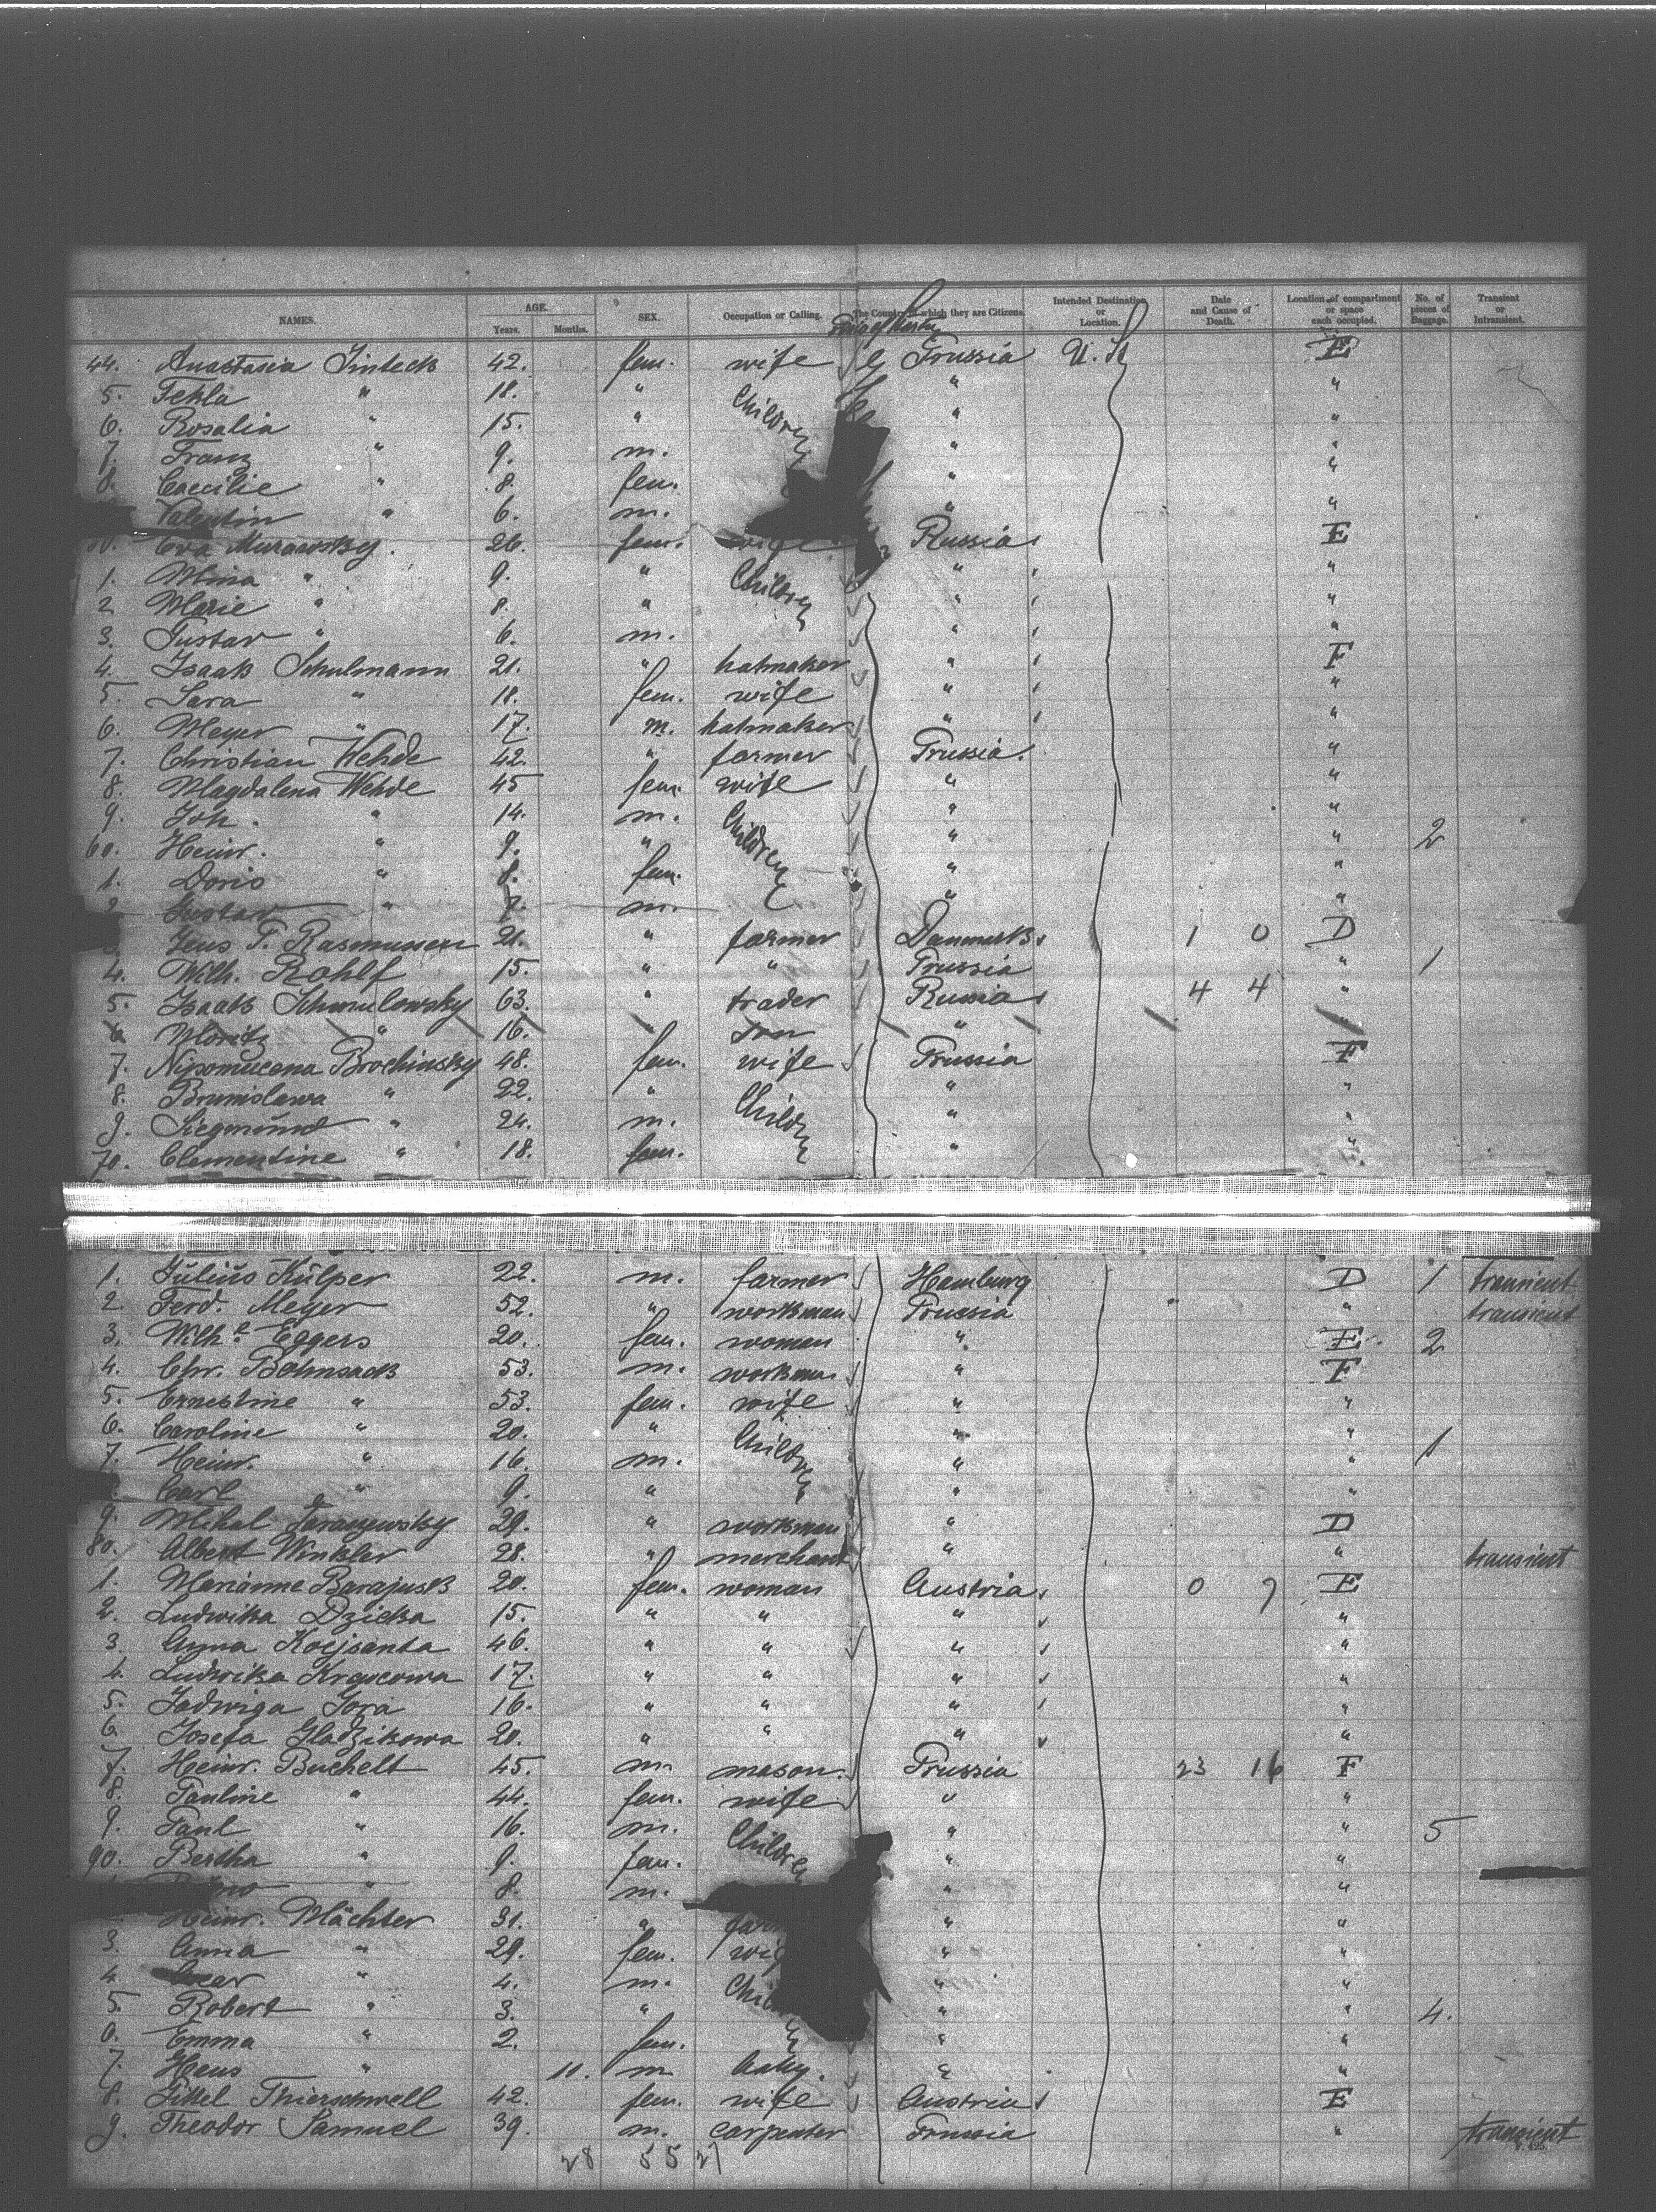 NAMES. AGE. Years. Months. SEX. Occupation or Calling. The Country of which they are Citizens. Intended Destination or Location. Date and Cause of Death. Location of compartment or space each occupied. No. of pieces of Baggage. Transient or Intransient.
44. Anastasia 42. fem. wife Prussia U. St E
5. Tekla " 18. " Children " "
6. Rosalia " 15. " " "
7. Franz " 9. m. " "
8. Caecilie " 8. fem. " "
Valentin " 6. m. " "
50. Eva Murawsky. 26. fem. wife Russia E
1. Mina " 9. " Children " "
2 Marie " 8. " " "
3. Gustav " 6. m. " "
4. Isaak Schulmann 21. " hatmaker " F
5. Sara " 18. fem. wife " "
6. Meyer " 17. m. hatmaker " "
7. Christian Wehde 42. " farmer Prussia. "
8. Magdalena Wehde 45 fem. wife " "
9. Joh. " 14. m. Children " "
60. Heinr. " 9. " " " 2
1. Doris " 8. fem. " "
2 Gustav " 7. m. " "
Jens P. Rasmussen 21. " farmer Danmark 1 0 D
4. Wilh. Rohlf 15. " " Prussia " 1
5. Isaak Schmulewsky 63. " trader Russia 4 4 "
6 Moritz " 16. " son " "
7. Nipomucena Brochinsky 48. fem. wife Prussia F
8. Brunislawa " 22. " Children " "
9. Siegmund " 24. m. " "
70. Clementine " 18. fem. " "
1. Julius Külper 22. m. farmer Hamburg D 1 transient
2. Ferd. Meyer 52. " workman Prussia " transient
3. Wilh.e Eggers 20. fem. woman " E 2
4. Chr. Bohnsack 53. m. workman " F
5. Ernestine " 53. fem. wife " "
6. Caroline " 20. " Children " "
7. Heinr. " 16. m. " " 1
Carl " 9. " " "
9. Mihal 29. " workman " D
80. Albert Winkler 28. " merchant " " transient
1. Marianne Barajusk 20. fem. woman Austria 0 7 E
2. Ludwika Dzicka 15. " " " "
3. Anna Kocjsanta 46. " " " "
4. Ludwika 17. " " " "
5. Jadwiga Gora 16. " " " "
6 Josefa Gladzikowa 20. " " " "
7. Heinr. Buchelt 45. m. mason. Prussia 23 16 F
8. Pauline " 44. fem. wife " "
9. Paul " 16. m. Children " " 5
90. Bertha " 9. fem. " "
" 8. m. " "
Heinr. Mächter 31. " " "
3. Anna " 29. fem. " "
4 " 4. m. " "
5. Robert " 3. " " " 4.
6. Emma " 2. fem. " "
7. Hans " 10. m baby. " "
8. Thierschwell 42. fem. wife Austria E
9. Theodor Samuel 39. m. carpenter Prussia " transient
28 55 27